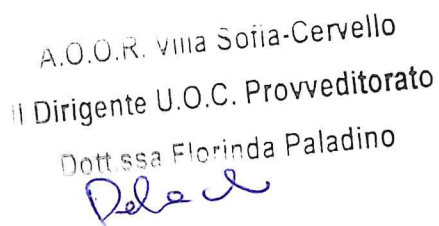 A.O.O.R. Villa Sofia-Cervello
Il Dirigente U.O.C. Provveditorato
Dott.ssa Florinda Paladino